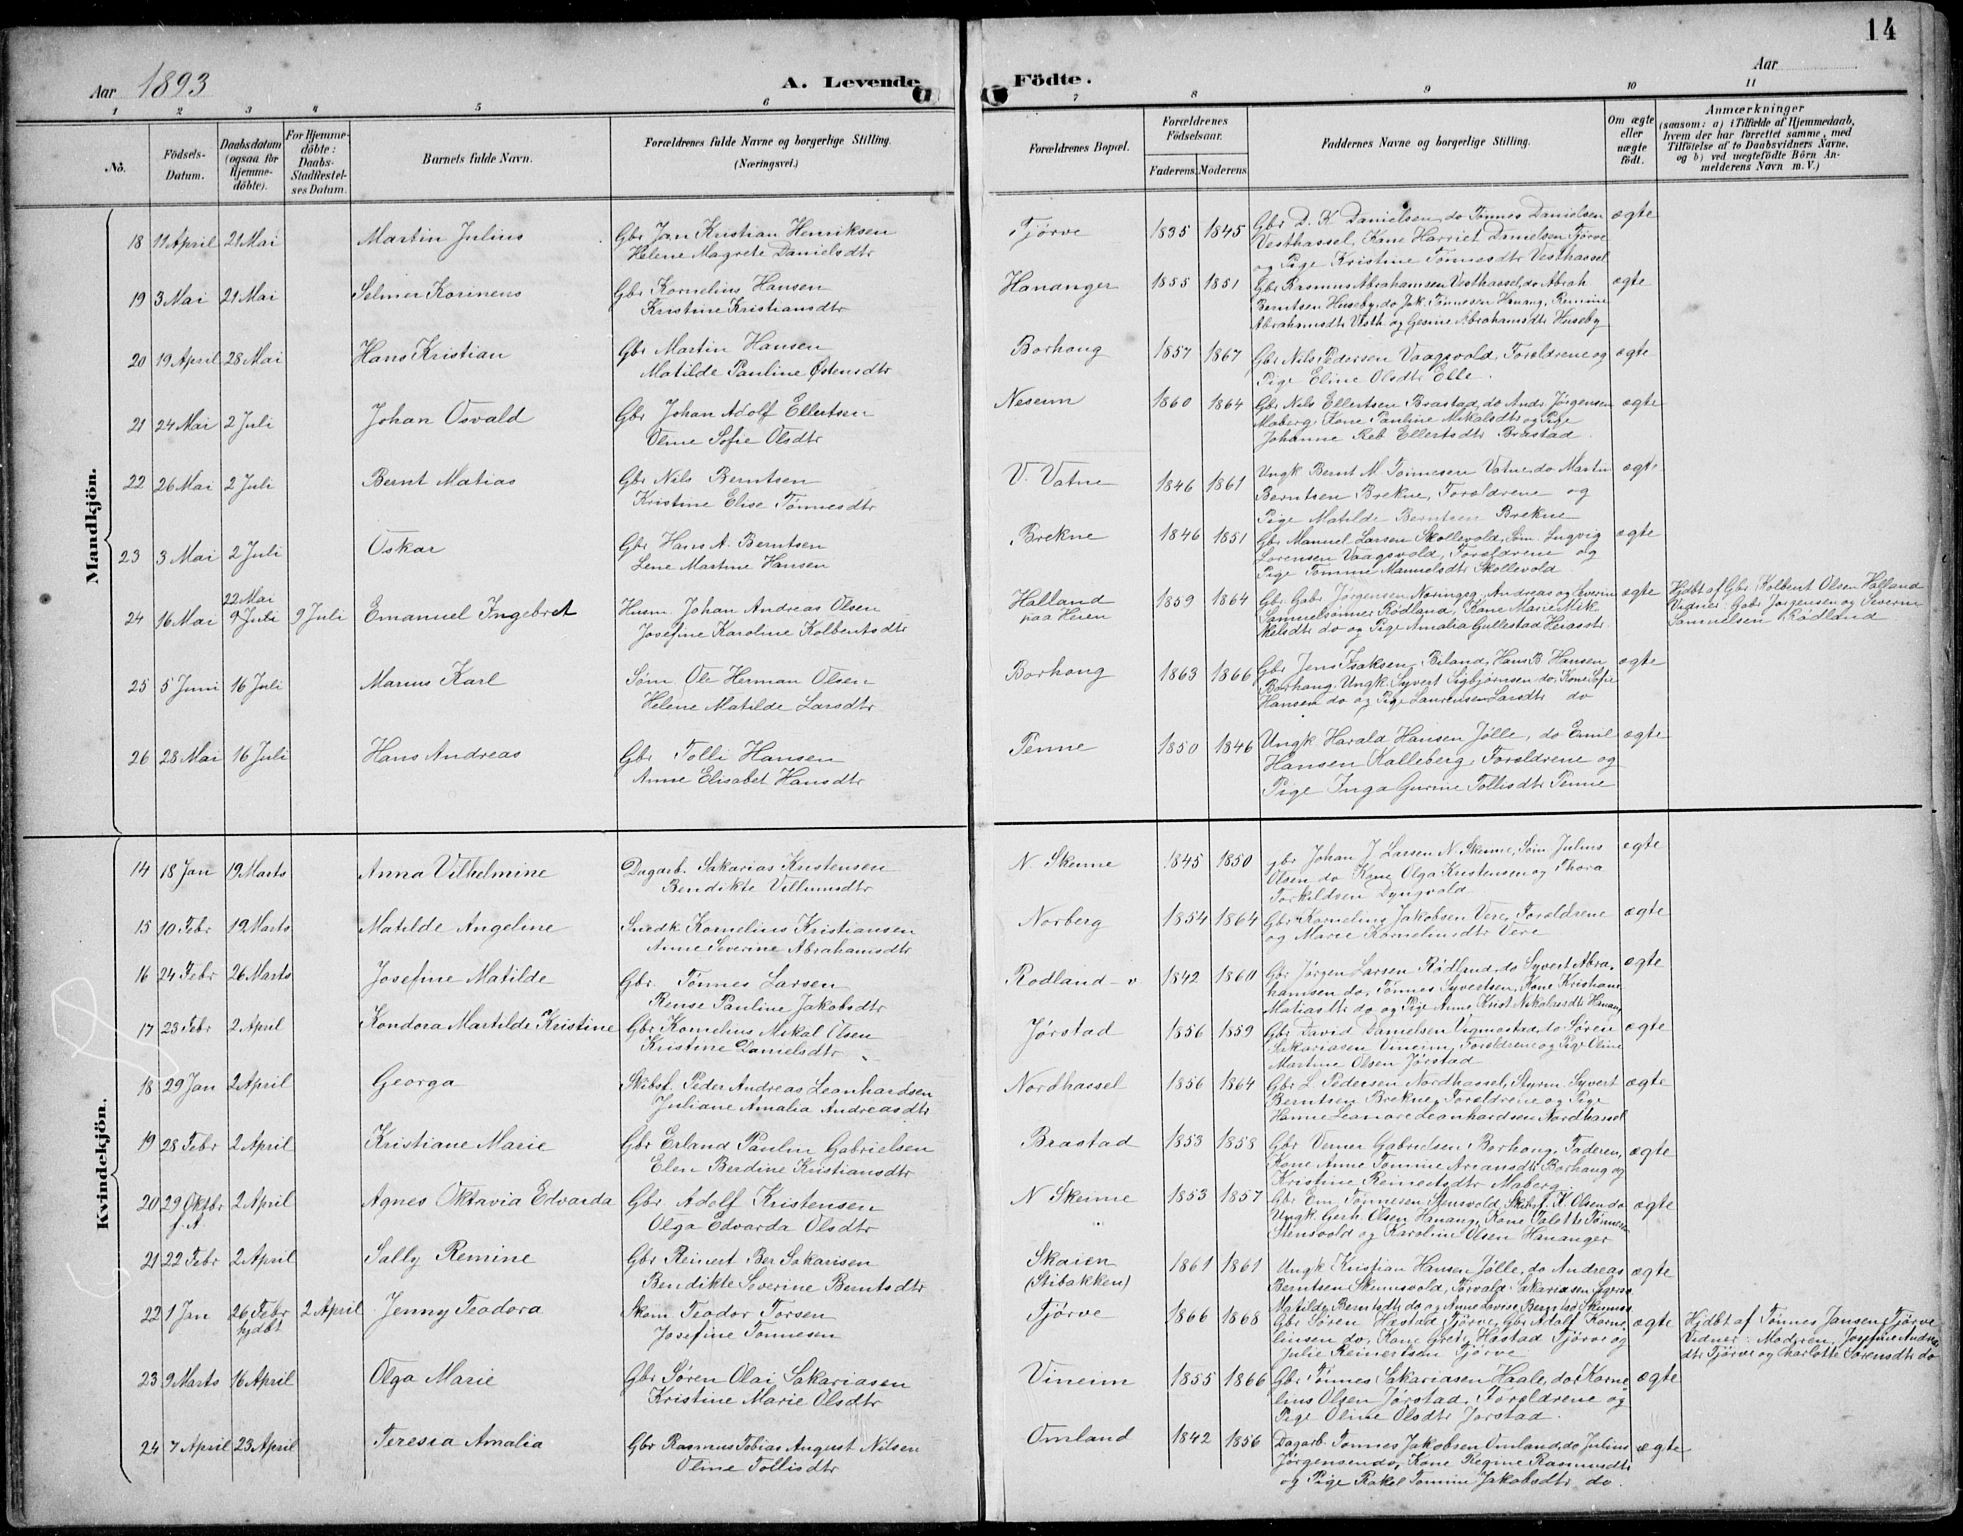 14
Aar 1893
A. Levende
Födte.
Aar
1 2 3 4 5 6 7 8 9 10 11
No.
Födsels-Datum.
Daabsdatum (ogsaa for Hjemme-döbte).
For Hjemme-döbte: Daabs-Stadfæstel-ses Datum.
Barnets fulde Navn.
Forældrenes fulde Navne og borgerlige Stilling. (Næringsvei.)
Forældrenes Bopæl.
Forældrenes Födselsaar.
Faderens. Moderens
Faddernes Navne og borgerlige Stilling.
Om ægte eller uægte födt.
Anmærkninger
(saasom: a) i Tilfælde af Hjemmedaab, hvem der har forrettet samme, med Tilföielse af to Daabsvidners Navne, og b) ved uægtefödte Börn An-melderens Navn m. V.)
Mandkjön.
18 11 April 21 Mai Martin Julius Gbr Jan Kristian Henriksen
Helene Magrete Danielsdtr
Tjørve 1835 1845 Gbr D. K Danielsen, do Tønnes Danielsen ægte
Vesthassel, Kone Harriet Danielsen Tjørve
og Pige Kristine Tønnesdtr Vesthassel
19 3 Mai 21 Mai Selmer Korinens Gbr Kornelius Hansen
Kristine Kristiansdtr
Hananger 1855 1851 Gbr Rasmus Abrahamsen Vesthassel, do Abrah ægte
Berntsen Huseby, do Jak. Tønnesen Hanang, Remine
Abrahamsdtr Vesth. og Gesine Abrahamsdtr Huseby
20 19 April 28 Mai Hans Kristian Gbr Martin Hansen
Matilde Pauline Østensdtr
Borhong 1857 1867 Gbr Nils Pedersen Vaagsvold, Forældrene og ægte
Pige Eline Olsdtr Elle.
21 24 Mai 2 Juli Johan Osvald Gbr Johan Adolf Ellertsen
Oline Sofie Olsdtr
Neseim 1860 1864 Gbr Nils Ellertsen Brastad, do Andr. Jørgensen ægte
Maberg, Kone Pauline Mikalsdtr og Pige
Johanne Reb Ellertsdtr Brastad.
22 26 Mai 2 Juli Bernt Matias Gbr Nils Berntsen
Kristine Elise Tønnesdtr
V. Vatne 1846 1861 Ungk Bernt M. Tønnesen Vatne, do Martin ægte
Berntsen Brekne, Forældrene og
Pige Matilde Berntsen Brekne
23 3 Mai 2 Juli Oskar Gbr Hans A. Berntsen
Lene Martine Hansen
Brekne 1846 1851 Gbr Manuel Larsen Skollevold, Søm. Lugvig ægte
Lorensen Vaagsvold, Forældrene og
Pige Tomine Manuelsdtr Skollevold
22 Mai
24 16 Mai 9 Juli 9 Juli Emanuel Ingebret Husm. Johan Andreas Olsen
Josefine Karoline Kolbentsdtr
Halland 1859 1864 Gbr Gabr Jørgensen Nøringseg, Andreas og Severin ægte Hjdbt af Gbr. Kolbent Olsen Halland
paa Heien
Samuelsønner Rødland, Kone Marie Mik Vidner: Gabr Jørgensen og Severin
kelsdtr do og Pige Amalia Gullestad Herasstr. Samuelsen Rødland
25 5 Juni 16 Juli Marius Karl Søm. Ole Herman Olsen
Helene Matilde Larsdtr
Borhong 1863 1866 Gbr Jens Isaksen Biland, Hans B Hansen ægte
Borhong, Ungk. Syvert Sigbjørnsen do, Kone Sofie
Hansen do og Pige Laurense Larsdtr do
26 28 Mai 16 Juli Hans Andreas Gbr Tolli Hansen
Anne Elisabet Hansdtr
Penne 1850 1846 Ungk Harald Hansen Jølle, do Emil ægte
Hansen Kalleberg, Forældrene og
Pige Inga Gurine Tollisdtr Penne
Kvindekjön.
14 18 Jan 19 Marts Anna Vilhelmine Dagarb. Sakarias Kristensen
Bendikte Villumsdtr
N Skeime 1845 1850 Gbr Johan J Larsen N Skeime, Søm Julius ægte
Olsen do Kone Olga Kristensen og Thora
Torkildsen Dyngvold
15 10 Febr 19 Marts Matilde Angeline Snedk. Kornelius Kristiansen
Anne Severine Abrahamsdtr
Norberg 1854 1864 Gbr Kornelius Jakobsen Vere, Forældrene ægte
og Marie Korneliusdtr Vere
16 24 Febr 26 Marts Josefine Matilde Gbr. Tønnes Larsen
Rense Pauline Jakobsdtr
Rodland - v 1842 1860 Gbr Jørgen Larsen Rødland, do Syvert Abra- ægte
hamsen do, Tønnes Syvertsen, Kone Kristiane
Matiasdtr do og Pige Anne Krist Nikolaisdtr Hanang
17 23 Febr 2 April Kondora Martilde Kristine Gbr Kornelius Mikal Olsen
Kristine Danielsdtr
Jørstad 1856 1859 Gbr David Danielsen Vigmostad, do Søren ægte
Sakariasen Vineim, Forældrene og Pige Oline
Martine Olsen Jørstad
18 29 Jan 2 April Georga Skibsf. Peder Andreas Leonhardsen
Juliane Amalia Andreasdtr
Nordhassel 1856 1864 Gbr L. Pedersen Nordhassel, Styrm. Syvert ægte
Berntsen Brekne, Forældrene og Pige
Hanne Leonore Leonhardsen Nordhassel
19 28 Febr 2 April Kristiane Marie Gbr Erland Paulin Gabrielsen
Elen Berdine Kristiansdtr
Brastad 1853 1858 Gbr Verner Gabrielsen Borhong, Faderen, ægte
Kone Anne Tomine Ariansdtr Borhong og
Kristine Reinertsdtr Maberg
20 29 Oktbr 2 April Agnes Oktavia Edvarda Gbr Adolf Kristensen
f. A Olga Edvarda Olsdtr
N Skeime 1853 1857 Gbr Em Tønnesen Stensvold, Skibsf. K. Olsen do ægte
Ungk. Gerh. Olsen Hanang, Kone Talette Tønnesen
Stensvold og Karoline Olsen Hananger
21 22 Febr 2 April Sally Remine Gbr Reinert Ber Sakarisen
Bendikte Severine Berntsdtr
Skaien 1861 1861 Ungk Kristian Hansen Jølle, do Andreas ægte
(Stibakken)
Berntsen Skeimsvold, Torvald Sakariasen
Matilde Berntsdtr do og Anne Lovise
22 1 Jan 26 Febr 2 April Jenny Teodora Skom. Teodor Torsen
hjdbt Josefine Tønnesen
Tjørve 1866 1868 Gbr Søren Hæstad Tjørve, Gbr Adolf Korne- ægte Hjdbt af Tønnes Jansen Tjørve
liusen do, Kone Grete Hæstad Tjørve og Vidner: Moderen, Josefine Andrea
Julie Reinertsen Tjørve dtr Tjørve og Charlotte Sørensdtr do
23 9 Marts 16 April Olga Marie Gbr Søren Olai Sakariasen
Kristine Marie Olsdtr
Vineim 1855 1866 Gbr Tønnes Sakariasen Haale, do Korne- ægte
lius Olsen Jørstad, Forældrene og
Pige Oline Olsdtr Jørstad.
24 7 April 23 April Teresia Amalia Gbr Rasmus Tobias August Nilsen
Oline Tollisdtr
Omland 1842 1856 Dagarb. Tønnes Jakobsen Omland, do Julius ægte
Jørgensen do, Kone Regine Rasmusdtr
og Pige Rakel Tomine Jakobsdtr do.